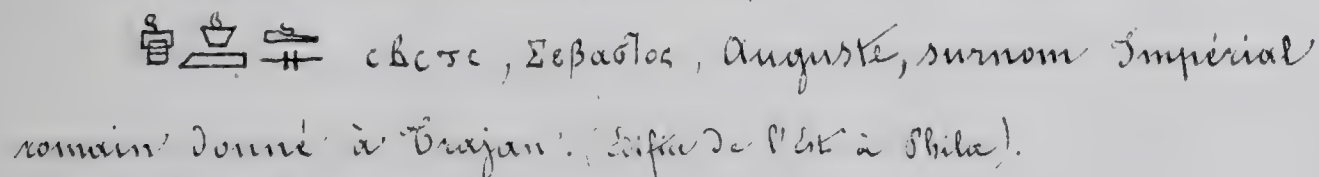 ⲥⲃⲥⲧⲥ, Σεβαστος, Auguste, surnom Impérial
romain donné à Trajan. édifice de l'Est à Philæ).